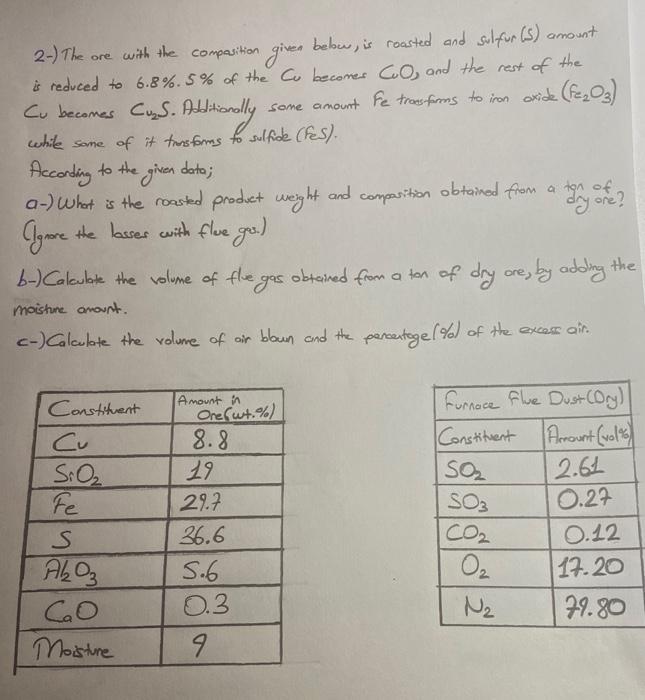 2-) The ore with the composition given below, is roasted and sulfur (S) amount
is reduced to 6.8%. 5% of the Cu becomes CuO, and the rest of the
Cu becomes Cu2S. Additionally some amount Fe transforms to iron oxide (Fe2O3)
while some of it transforms to sulfide (FeS).
According to the given data;
a-) What is the roasted product weight and composition obtained from a ton of dry ore?
(Ignore the losses with flue gas.)
b-) Calculate the volume of flue gas obtained from a ton of dry ore, by adding the
moisture amount.
c-) Calculate the volume of air blown and the percentage (%) of the excess air.
Constituent Amount in Ore (wt.%)
Cu 8.8
SiO2 19
Fe 29.7
S 36.6
Al2O3 5.6
CaO 0.3
Moisture 9
Furnace Flue Dust (Dry)
Constituent Amount (vol%)
SO2 2.61
SO3 0.27
CO2 0.12
O2 17.20
N2 79.80